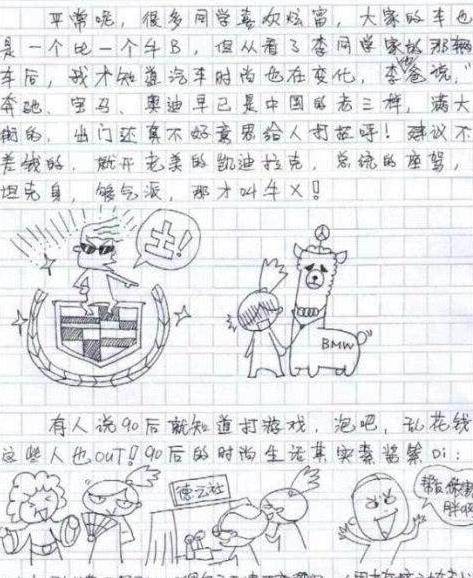 平常呢，很多同学喜欢炫富，大家的车也
是一个比一个牛B，但从看了李同学家的那辆
车后，我才知道汽车时尚也在变化，李爸说，
奔驰、宝马、奥迪早已是中国的老三样，满大
街的，出门还真不好意思给人打招呼！建议不
差钱的，就开老美的凯迪拉克，总统的座驾，
坦克身，够气派，那才叫牛X！
土！
BMW
有人说90后就知道打游戏，泡吧，乱花钱
这些人也OUT！90后的时尚生活其实
德云社